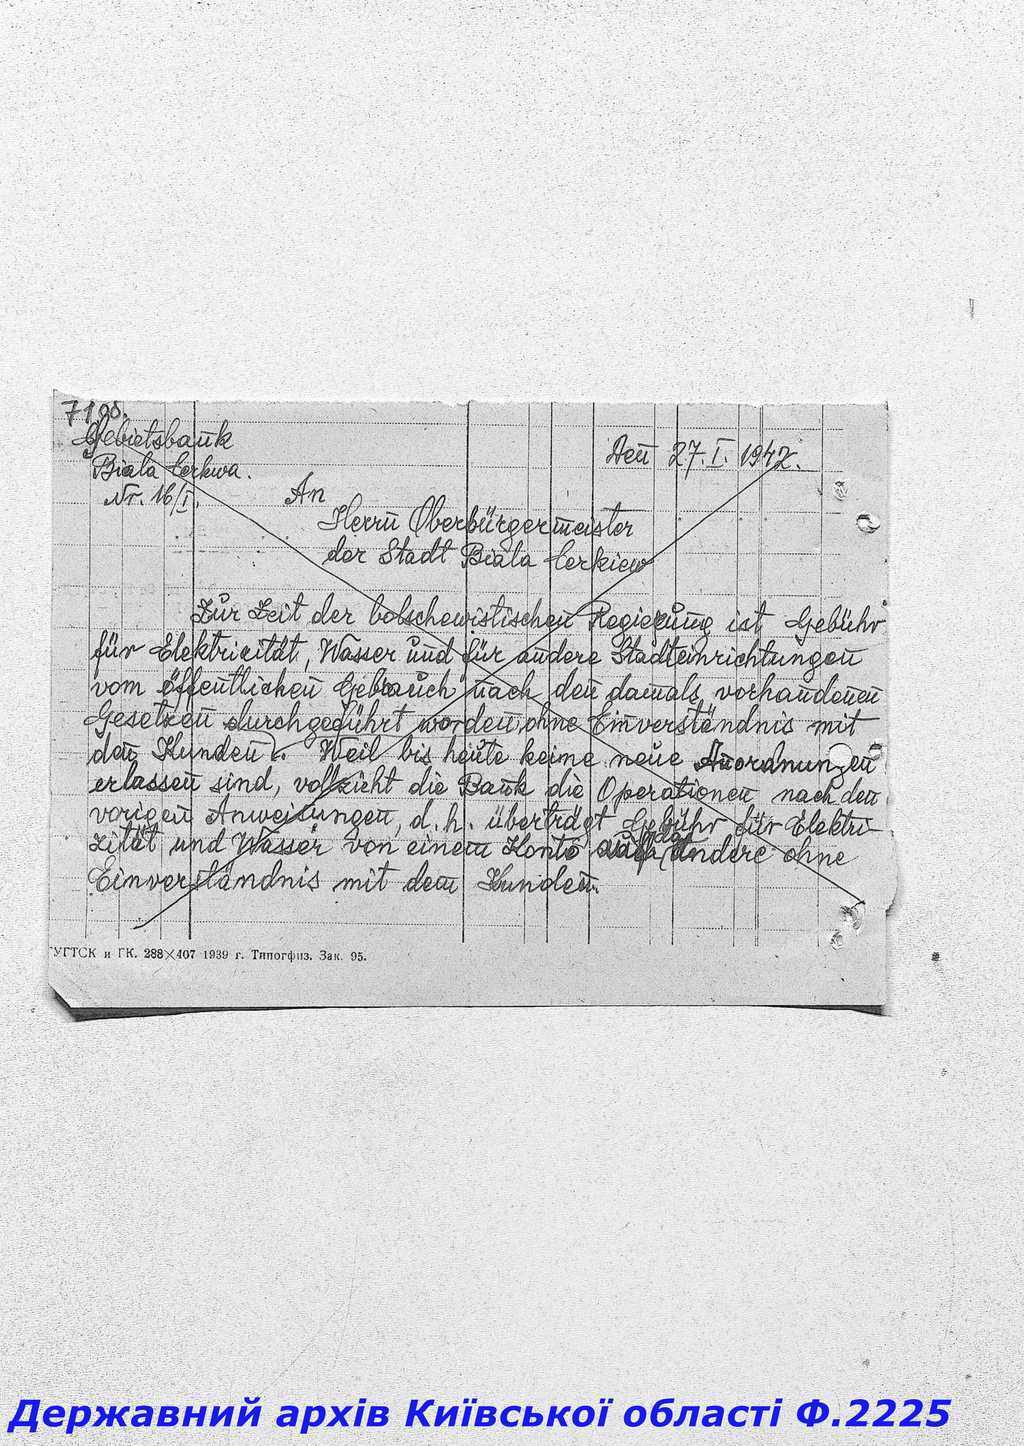 71 об.
Gebietsbank
Biala Cerkwa.
Nr. 16/I.
Den 27. I. 1942.
An
Herrn Oberbürgermeister
der Stadt Biala Cerkiew
Zur Zeit der bolschewistischen Regierung ist Gebühr
für Elektricität, Wasser und für andere Stadteinrichtungen
vom öffentlichen Gebrauch nach den damals vorhandenen
Gesetzen durchgeführt worden, ohne Einverständnis mit
den Kunden. Weil bis heute keine neue Anordnungen
erlassen sind, vollzieht die Bank die Operationen nach den
vorigen Anweisungen, d. h. überträgt Gebühr für Elektri-
zität und Wasser von einem Konto auf das andere ohne
Einverständnis mit dem Kunden.
ГУГТСК и ГК. 288×407 1939 г. Типогфиз. Зак. 95.
Державний архів Київської області Ф.2225